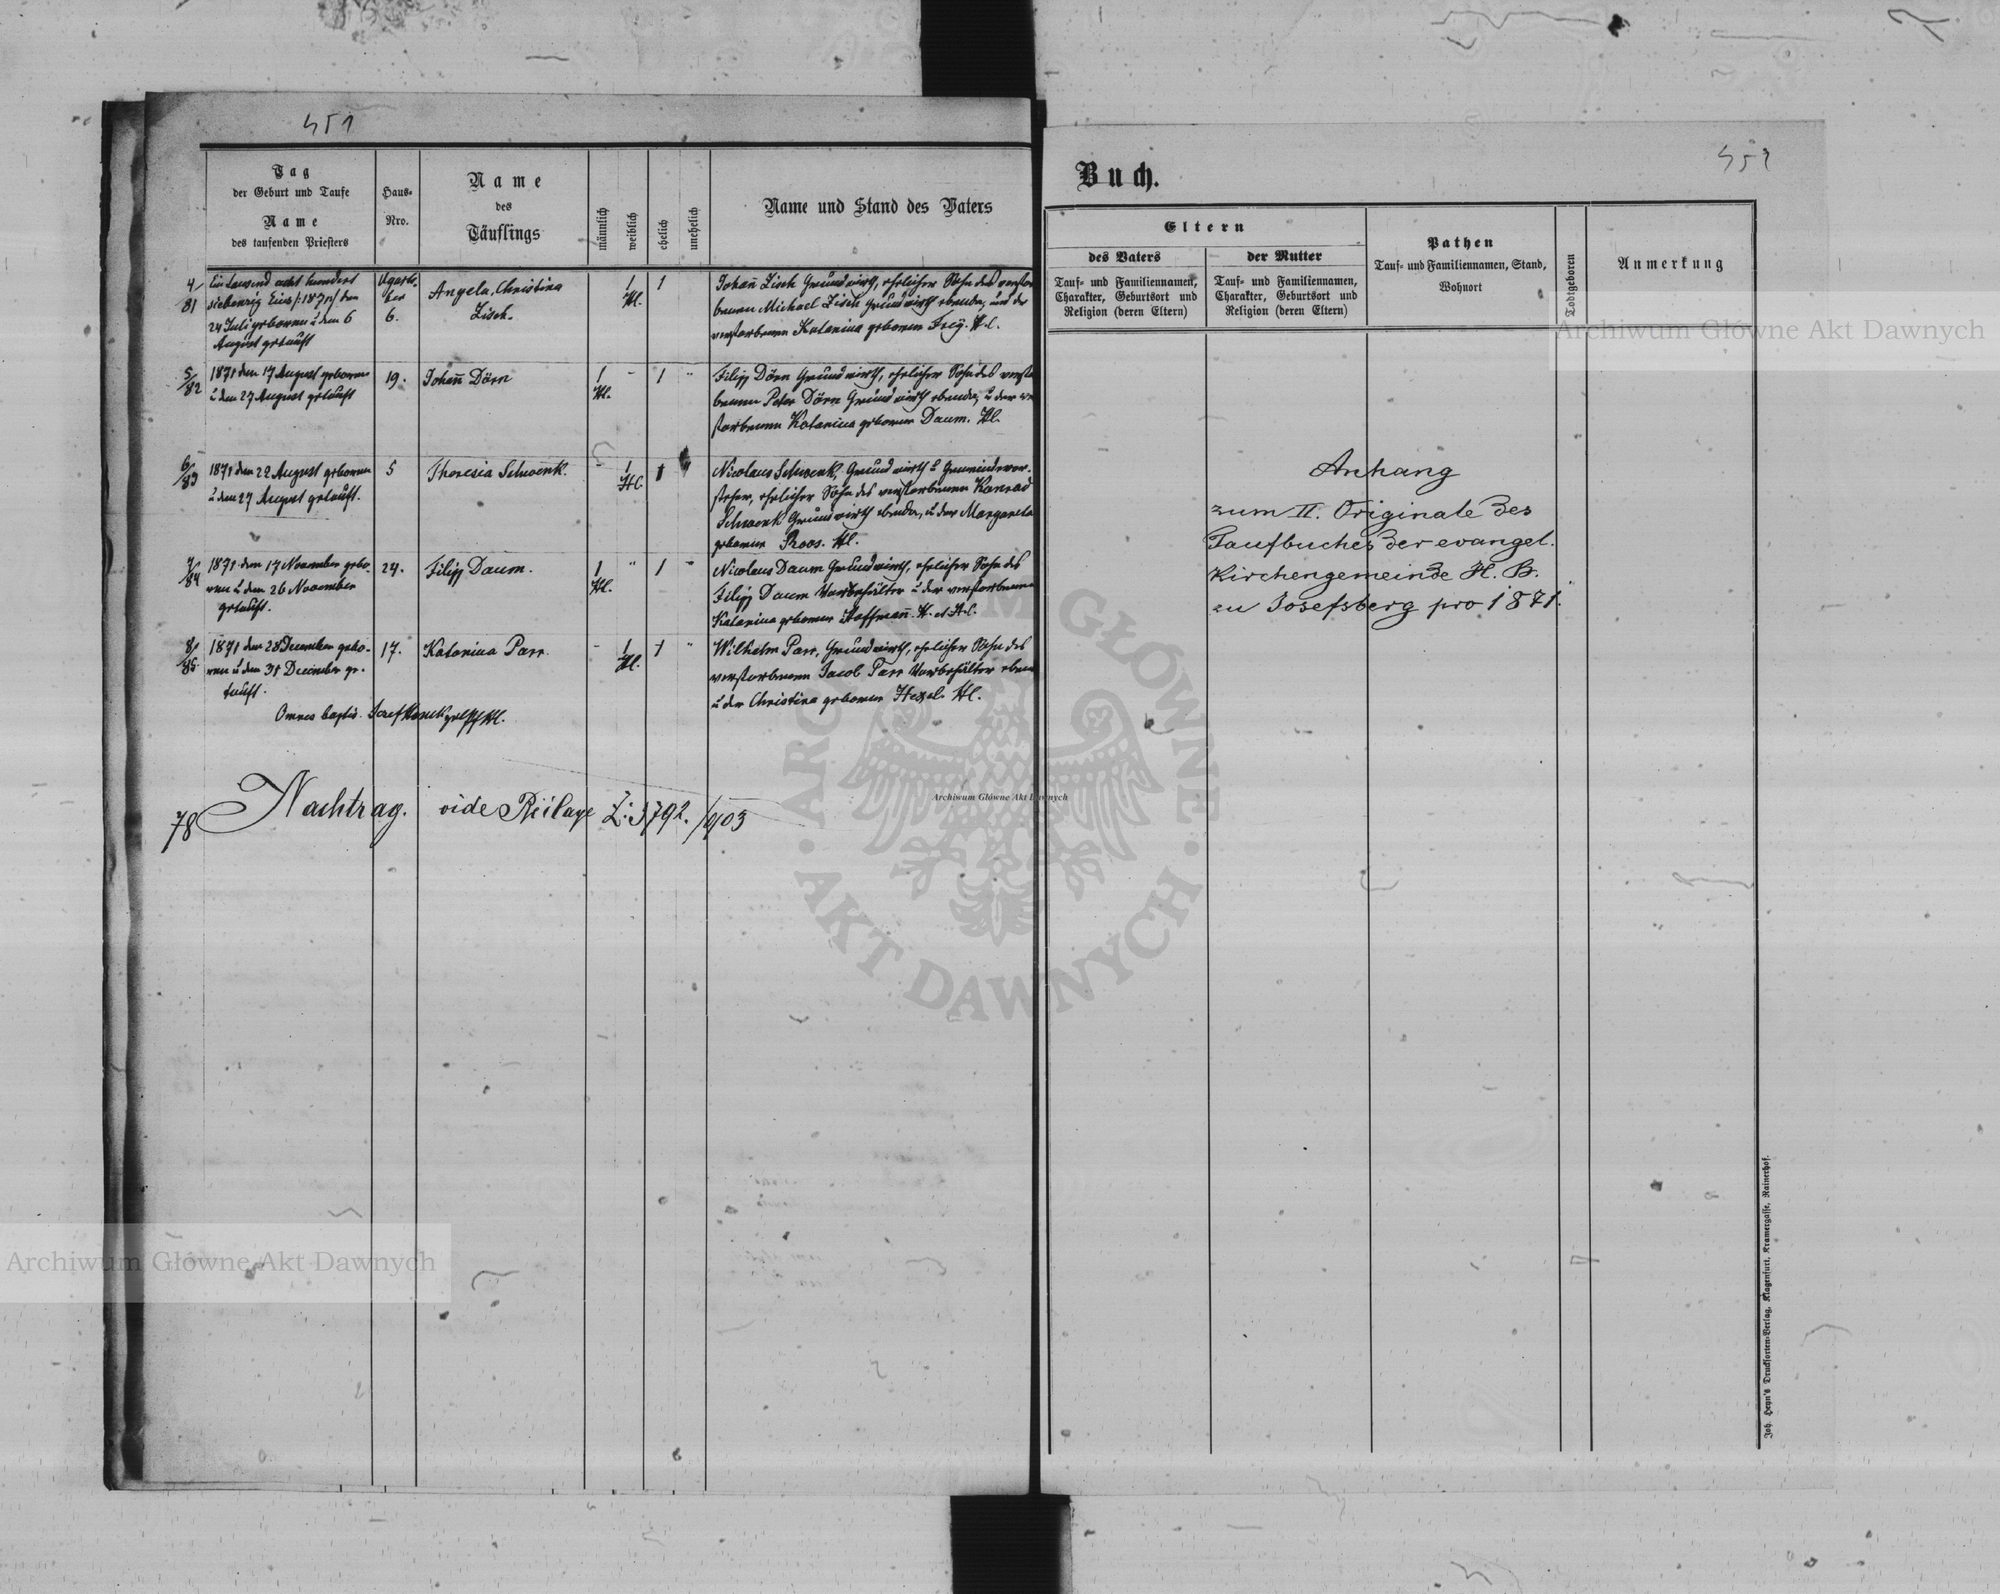 451
Tag
der Geburt und Taufe
Name
des taufenden Priesters
Haus-
Nro.
Name
des
Täuflings
männlich
weiblich
ehelich
unehelich
Name und Stand des Vaters
4/81
Ein tausend acht hundert
siebenzig Eins /:1871:/ den
24 Juli geboren u den 6
August getauft
6.
Angela, Christina
Zisch.
1
Hl.
1
Johañ Zisch Grundwirth, ehelicher Sohn des verstor
benen Michael Zisch Grundwirth ebenda, und der
verstorbenen Katarina geborene Frey. H.C.
5/82
1871 den 17 August geboren
u den 27 August getauft
19.
Johañ Dörn
1
Hl.
-
1
"
Filipp Dörn Grundwirth, ehelicher Sohn des verstor
benen Peter Dörn Grundwirth ebenda, u der ver
storbenen Katarina geborene Daum. Hl.
6/83
1871 den 22 August geboren
u den 27 August getauft.
5
Theresia Schwenk.
-
1
Hl.
1
"
Nicolaus Schwenk, Grundwirth u Gemeindevor-
steher, ehelicher Sohn des verstorbenen Konrad
Schwenk Grundwirth ebenda, u der Margareta
geborene Roos. Hl.
7/84
1871 den 17 November gebo-
ren u den 26 November
getauft.
24.
Filipp Daum.
1
Hl.
"
1
"
Nicolaus Daum Grundwirth, ehelicher Sohn des
Filipp Daum Vorbehälter u der verstorbenen
Katarina geborene Hoffmañ. H. et A.C.
8/85
1871 den 28 December gebo-
ren u den 31 December ge-
tauft.
17.
Katarina Parr.
-
1
Hl.
1
"
Wilhelm Parr, Grundwirth, ehelicher Sohn des
verstorbenen Jacob Parr Vorbehälter eben
u der Christina geborene Hexel. Hl.
Omnes baptis. Josef
78
Nachtrag. vide Beilage Z: 3792./903
452
Buch.
Eltern
des Vaters
Tauf- und Familiennamen,
Charakter, Geburtsort und
Religion (deren Eltern)
der Mutter
Tauf- und Familiennamen,
Charakter, Geburtsort und
Religion (deren Eltern)
Pathen
Tauf- und Familiennamen, Stand,
Wohnort
Todtgeboren
Anmerkung
Anhang
zum II. Originale des
Taufbuches der evangel.
Kirchengemeinde H. B.
zu Josefsberg pro 1871.
Joh. Heyn's Drucksorten-Verlag, Klagenfurt, Kramergasse, Rainerhof.
Archiwum Główne Akt Dawnych
Archiwum Główne Akt Dawnych
Archiwum Główne Akt Dawnych
ARCHIWUM GŁÓWNE · AKT DAWNYCH ·